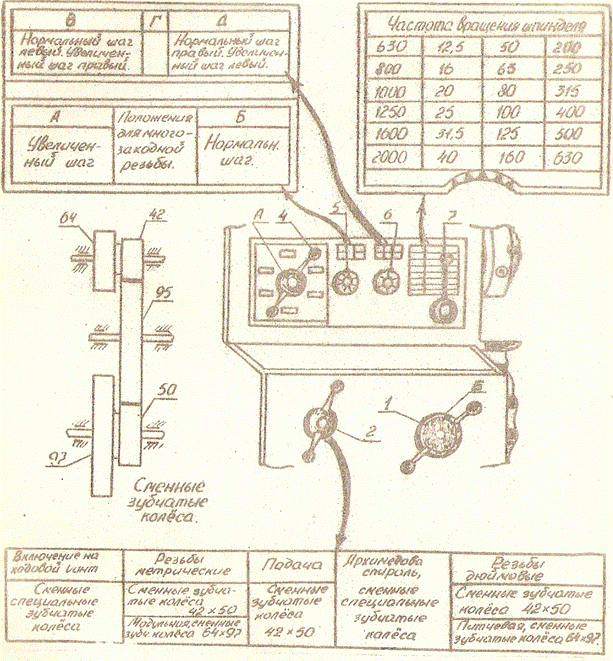 В Г Д
Нормальный шаг
левый. Увеличен-
ный шаг правый.
Нормальный шаг
правый. Увеличен-
ный шаг левый.
А
Положения
для много-
заходной
резьбы.
Б
Увеличен-
ный шаг
Нормальн.
шаг.
Частота вращения шпинделя
630 12,5 50 200
800 16 63 250
1000 20 80 315
1250 25 100 400
1600 31,5 125 500
2000 40 160 630
64
42
95
50
97
А 4 5 6 7
1 Б
2
Сменные
зубчатые
колёса.
Включение на
ходовой винт
Резьбы
метрические
Подача
Архимедова
спираль,
сменные
специальные
зубчатые
колёса
Резьбы
дюймовые
Сменные
специальные
зубчатые
колёса
Сменные зубча-
тые колёса
42×50
Модульная, сменные
зубч. колёса 64×97
Сменные
зубчатые
колёса
42×50
Сменные зубчатые
колёса 42×50
Питчевая, сменные
зубчатые колёса 64×97.